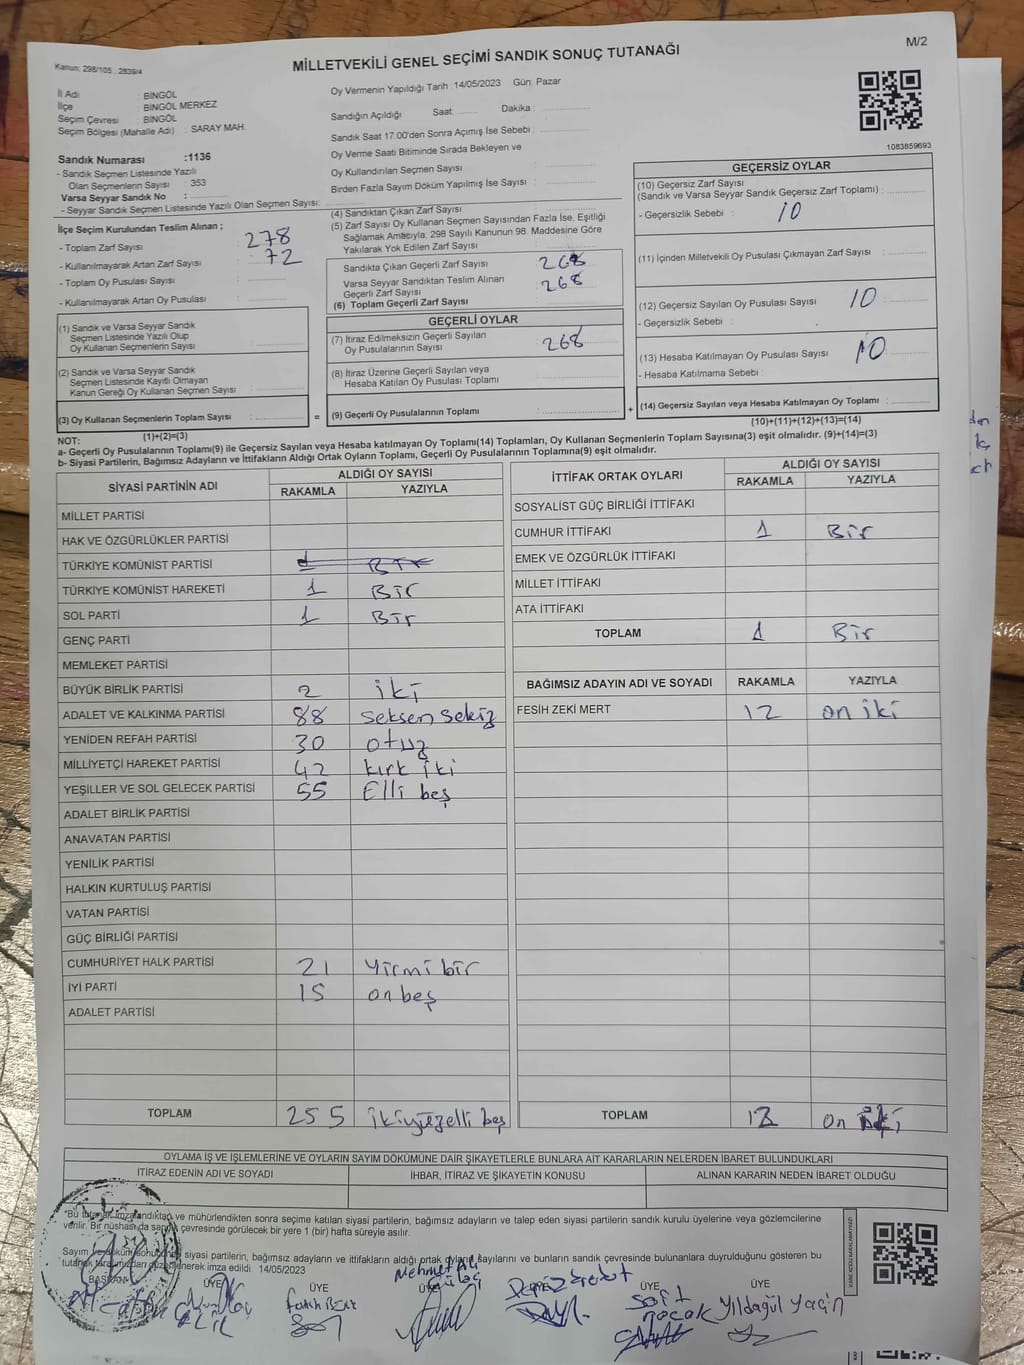 M/2
MİLLETVEKİLİ GENEL SEÇİMİ SANDIK SONUÇ TUTANAĞI
Kanun; 298/105 , 2839/4
İl Adı : BİNGÖL
İlçe : BİNGÖL MERKEZ
Seçim Çevresi : BİNGÖL
Seçim Bölgesi (Mahalle Adı) : SARAY MAH.
Sandık Numarası :1136
- Sandık Seçmen Listesinde Yazılı
Olan Seçmenlerin Sayısı : 353
Varsa Seyyar Sandık No :
- Seyyar Sandık Seçmen Listesinde Yazılı Olan Seçmen Sayısı:
Oy Vermenin Yapıldığı Tarih :14/05/2023 Gün: Pazar
Sandığın Açıldığı Saat: Dakika :
Sandık Saat 17.00'den Sonra Açımış İse Sebebi :
Oy Verme Saati Bitiminde Sırada Bekleyen ve
Oy Kullandırılan Seçmen Sayısı :
Birden Fazla Sayım Döküm Yapılmış İse Sayısı :
1083859693
İlçe Seçim Kurulundan Teslim Alınan ;
- Toplam Zarf Sayısı : 278
- Kullanılmayarak Artan Zarf Sayısı : 72
- Toplam Oy Pusulası Sayısı :
- Kullanılmayarak Artan Oy Pusulası :
(1) Sandık ve Varsa Seyyar Sandık
Seçmen Listesinde Yazılı Olup
Oy Kullanan Seçmenlerin Sayısı :
(2) Sandık ve Varsa Seyyar Sandık
Seçmen Listesinde Kayıtlı Olmayan
Kanun Gereği Oy Kullanan Seçmen Sayısı :
(3) Oy Kullanan Seçmenlerin Toplam Sayısı :
(1)+(2)=(3)
(4) Sandıktan Çıkan Zarf Sayısı :
(5) Zarf Sayısı Oy Kullanan Seçmen Sayısından Fazla İse, Eşitliği
Sağlamak Amacıyla, 298 Sayılı Kanunun 98. Maddesine Göre
Yakılarak Yok Edilen Zarf Sayısı :
Sandıkta Çıkan Geçerli Zarf Sayısı : 268
Varsa Seyyar Sandıktan Teslim Alınan
Geçerli Zarf Sayısı : 268
(6) Toplam Geçerli Zarf Sayısı :
GEÇERLİ OYLAR
(7) İtiraz Edilmeksizin Geçerli Sayılan
Oy Pusulalarının Sayısı : 268
(8) İtiraz Üzerine Geçerli Sayılan veya
Hesaba Katılan Oy Pusulası Toplamı :
=
(9) Geçerli Oy Pusulalarının Toplamı :
+
GEÇERSİZ OYLAR
(10) Geçersiz Zarf Sayısı
(Sandık ve Varsa Seyyar Sandık Geçersiz Zarf Toplamı) :
- Geçersizlik Sebebi : 10
(11) İçinden Milletvekili Oy Pusulası Çıkmayan Zarf Sayısı :
(12) Geçersiz Sayılan Oy Pusulası Sayısı : 10
- Geçersizlik Sebebi :
(13) Hesaba Katılmayan Oy Pusulası Sayısı : 10
- Hesaba Katılmama Sebebi :
(14) Geçersiz Sayılan veya Hesaba Katılmayan Oy Toplamı :
(10)+(11)+(12)+(13)=(14)
NOT:
a- Geçerli Oy Pusulalarının Toplamı(9) ile Geçersiz Sayılan veya Hesaba katılmayan Oy Toplamı(14) Toplamları, Oy Kullanan Seçmenlerin Toplam Sayısına(3) eşit olmalıdır. (9)+(14)=(3)
b- Siyasi Partilerin, Bağımsız Adayların ve İttifakların Aldığı Ortak Oyların Toplamı, Geçerli Oy Pusulalarının Toplamına(9) eşit olmalıdır.
SİYASİ PARTİNİN ADI ALDIĞI OY SAYISI
RAKAMLA YAZIYLA
MİLLET PARTİSİ
HAK VE ÖZGÜRLÜKLER PARTİSİ
TÜRKİYE KOMÜNİST PARTİSİ 1 Bir
TÜRKİYE KOMÜNİST HAREKETİ 1 Bir
SOL PARTİ 1 Bir
GENÇ PARTİ
MEMLEKET PARTİSİ
BÜYÜK BİRLİK PARTİSİ 2 iki
ADALET VE KALKINMA PARTİSİ 88 seksen sekiz
YENİDEN REFAH PARTİSİ 30 otuz
MİLLİYETÇİ HAREKET PARTİSİ 42 kırk iki
YEŞİLLER VE SOL GELECEK PARTİSİ 55 Elli beş
ADALET BİRLİK PARTİSİ
ANAVATAN PARTİSİ
YENİLİK PARTİSİ
HALKIN KURTULUŞ PARTİSİ
VATAN PARTİSİ
GÜÇ BİRLİĞİ PARTİSİ
CUMHURİYET HALK PARTİSİ 21 yirmi bir
İYİ PARTİ 15 on beş
ADALET PARTİSİ
TOPLAM 255 ikiyüzelli beş
İTTİFAK ORTAK OYLARI ALDIĞI OY SAYISI
RAKAMLA YAZIYLA
SOSYALİST GÜÇ BİRLİĞİ İTTİFAKI
CUMHUR İTTİFAKI 1 Bir
EMEK VE ÖZGÜRLÜK İTTİFAKI
MİLLET İTTİFAKI
ATA İTTİFAKI
TOPLAM 1 Bir
BAĞIMSIZ ADAYIN ADI VE SOYADI RAKAMLA YAZIYLA
FESİH ZEKİ MERT 12 on iki
TOPLAM 12 on iki
OYLAMA İŞ VE İŞLEMLERİNE VE OYLARIN SAYIM DÖKÜMÜNE DAİR ŞİKAYETLERLE BUNLARA AİT KARARLARIN NELERDEN İBARET BULUNDUKLARI
İTİRAZ EDENİN ADI VE SOYADI İHBAR, İTİRAZ VE ŞİKAYETİN KONUSU ALINAN KARARIN NEDEN İBARET OLDUĞU
"Bu tutanak imzalandıktan ve mühürlendikten sonra seçime katılan siyasi partilerin, bağımsız adayların ve talep eden siyasi partilerin sandık kurulu üyelerine veya gözlemcilerine
verilir. Bir nüshası da sandık çevresinde görülecek bir yere 1 (bir) hafta süreyle asılır.
Sayım ve döküm sonucunda siyasi partilerin, bağımsız adayların ve ittifakların aldığı ortak oyların sayılarını ve bunların sandık çevresinde bulunanlara duyrulduğunu gösteren bu
tutanak tarafımızdan düzenlenerek imza edildi. 14/05/2023
BAŞKAN ÜYE ÜYE ÜYE ÜYE ÜYE
Mehmet Ali
Sait
Koçak Yıldagül Yalçın